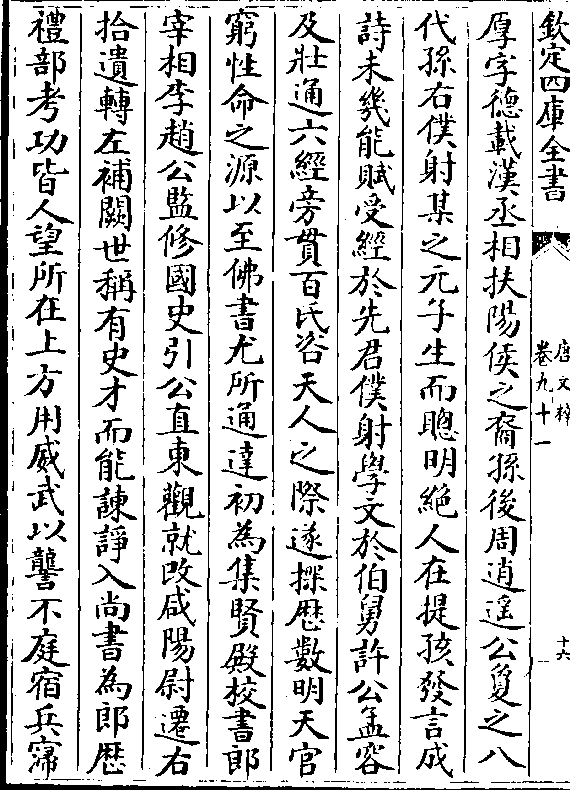 欽定四庫全書
唐文粹
卷九十一
十六
厚字德載漢丞相扶陽侯之裔孫後周逍遥公敻之八
代孫右僕射某之元子生而聰明絶人在提孩發言成
詩未幾能賦受經於先君僕射學文於伯舅許公孟容
及壯通六經旁貫百氏咨天人之際遂探厯數明天官
窮性命之源以至佛書尤所通達初為集賢殿校書郎
宰相李趙公監修國史引公直東觀就改咸陽尉遷右
拾遺轉左補闕世稱有史才而能諫諍入尚書為郎厯
禮部考功皆人望所在上方用威武以讋不庭宿兵寫